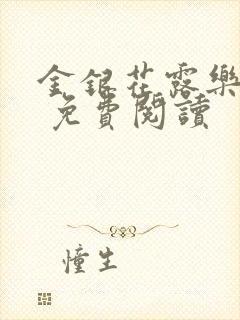 金銀花露樂
免費閱讀
憧生